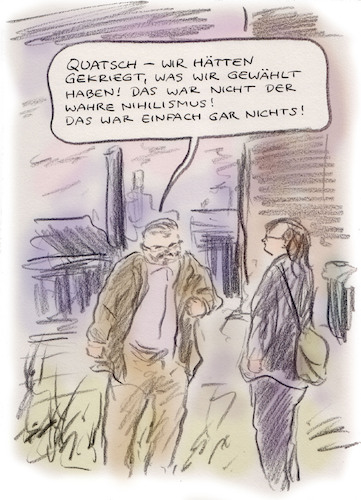 QUATSCH – WIR HÄTTEN
GEKRIEGT, WAS WIR GEWÄHLT
HABEN! DAS WAR NICHT DER
WAHRE NIHILISMUS!
DAS WAR EINFACH GAR NICHTS!